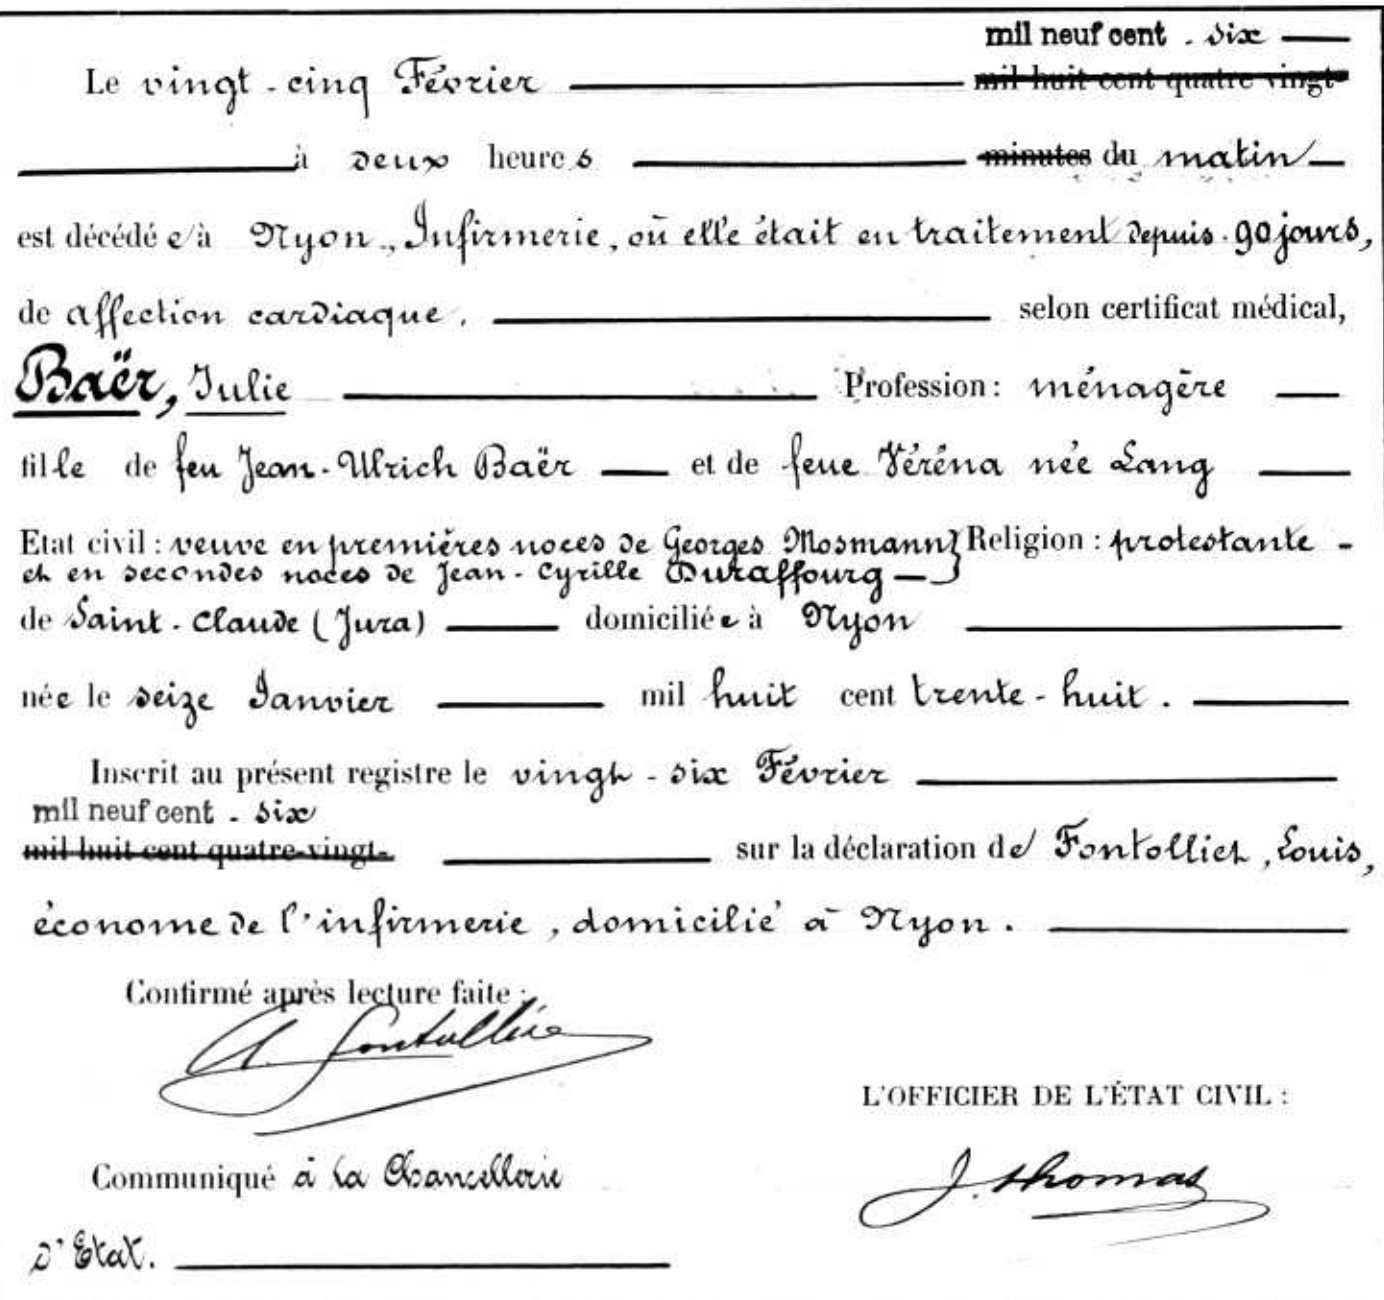 mil neuf cent - six
Le vingt-cinq Février mil huit cent quatre vingt-
à deux heures minutes du matin
est décédée à Nyon, Infirmerie, où elle était en traitement depuis 90 jours,
de affection cardiaque. selon certificat médical,
Baër, Julie Profession: ménagère
fille de feu Jean-Ulrich Baër et de feue Véréna née Lang
Etat civil : veuve en premières noces de Georges Mosmann } Religion : protestante -
et en secondes noces de Jean-Cyrille Duraffourg
de Saint-Claude (Jura) domiciliée à Nyon
née le seize Janvier mil huit cent trente-huit.
Inscrit au présent registre le vingt-six Février
mil neuf cent - six
mil huit cent quatre-vingt- sur la déclaration de Fontolliet, Louis,
économe de l'infirmerie, domicilié à Nyon.
Confirmé après lecture faite :
L. Fontolliet
L'OFFICIER DE L'ÉTAT CIVIL :
Communiqué à la Chancellerie
J. Thomas
d'Etat.